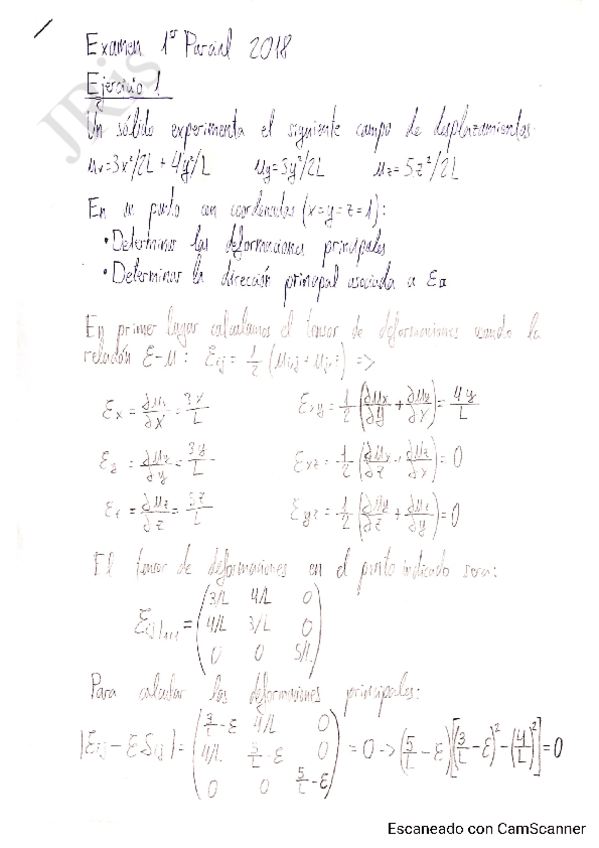 Examen 1er Parcial 2018
JRis
Ejercicio 1
Un sólido experimenta el siguiente campo de desplazamientos:
ux=3x²/2L + 4y²/L uy=3y²/2L uz=5z²/2L
En un punto con coordenadas (x=y=z=1):
• Determinar las deformaciones principales
• Determinar la dirección principal asociada a εII
En primer lugar calculamos el tensor de deformaciones usando la
relación ε-u: εij = 1/2 (ui,j + uj,i) =>
εx = ∂ux/∂x = 3x/L εxy = 1/2 (∂ux/∂y + ∂uy/∂x) = 4y/L
εy = ∂uy/∂y = 3y/L εxz = 1/2 (∂ux/∂z + ∂uz/∂x) = 0
εz = ∂uz/∂z = 5z/L εyz = 1/2 (∂uy/∂z + ∂uz/∂y) = 0
El tensor de deformaciones en el punto indicado será:
3/L 4/L 0
εij|1,1,1 = 4/L 3/L 0
0 0 5/L
Para calcular las deformaciones principales:
3/L-ε 4/L 0
|εij - εδij| = 4/L 3/L-ε 0 = 0 -> (5/L - ε)[(3/L - ε)² - (4/L)²] = 0
0 0 5/L-ε
Escaneado con CamScanner